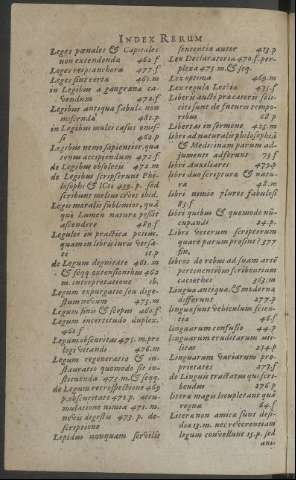 INDEX RERUM
Leges pœnales & Capitales
non extendenda 462.f
Leges respi anchora 477.f
Leges sint certa 467.m
in Legibus a gangrena ca-
vendum 472.f
Legibus antiqua fabul. non
miscenda 481.p
in Legibus mult casus omis-
si 462.p
Legibus nemo sapientior, qua
senq́ accipiendum 472.f
de Legibus obsoletis 472.m
de Legibus scripserunt Phi-
losophi & ICti 459.p. sed
scribunt melius cives ibid.
Leges moralis sublimior, quā
quò Lumen natura possit
ascendere 489.f
Leguleï in practica potius,
quam in libris iura Versa-
ti
de Legum dignitate 461.m
& seqq. extensionibus 462
m. interpretatione ib.
Legum expurgatio seu dige-
stum novum 473.m
Legum finis & scopus 460.f
Legum incertitudo duplex.
461.f
Legum obscuritas 475.m. pro-
logi vitandi 476.m
Legum regeneratio & in-
stauratio quomodo sit in-
stituenda 473.m. & seqq.
de Legum retrospectione 469
p. obscuritate 471.p. accu-
mulatione nimia 471.m.
novis digestis 473.p. de-
scriptione
Lepidus nunquam servilis
sententia autor 413.p
Lex Declaratoria 470.f. per-
plexa 475.m. & seq.
Lex optima 469.m
Lex regula Lesbia 435.f
Liberis aucti procatores soli-
citi sunt de futuris tempo-
ribus 68.p
Libertas in sermone 425.m
libri ad naturalē philosophiā
& Medicinam parum ad-
jumenti adferunt 75.f
libri auxiliares 479.p
libri duo scriptura & natu-
ra 48.m
libri nimio plures fabulosi
85.f
libri quibus & quomodo nū-
cupandi 44.p.
Libri veterum scriptorum
quare parum prosint? 377
fin.
libros de rebus ad suam artē
pertinentibus scribentium
cacoëthes 363.m
Lingua antiqua, & moderna
differunt 277.p
lingua sunt vehiculum scien-
tia 46.f
linguarum confusio 44.p
linguarum eruditarum uti-
litas 254.p
Linguarum variarum pro-
prietates 273.f
de Linguis tractatus quis scri-
bendus 276.p
litera magis locupletant quā
regna 64.f
Litera non amica sunt desi-
dia 13.m. nec reverentiam
legum convellunt 15.p. sed
ani-